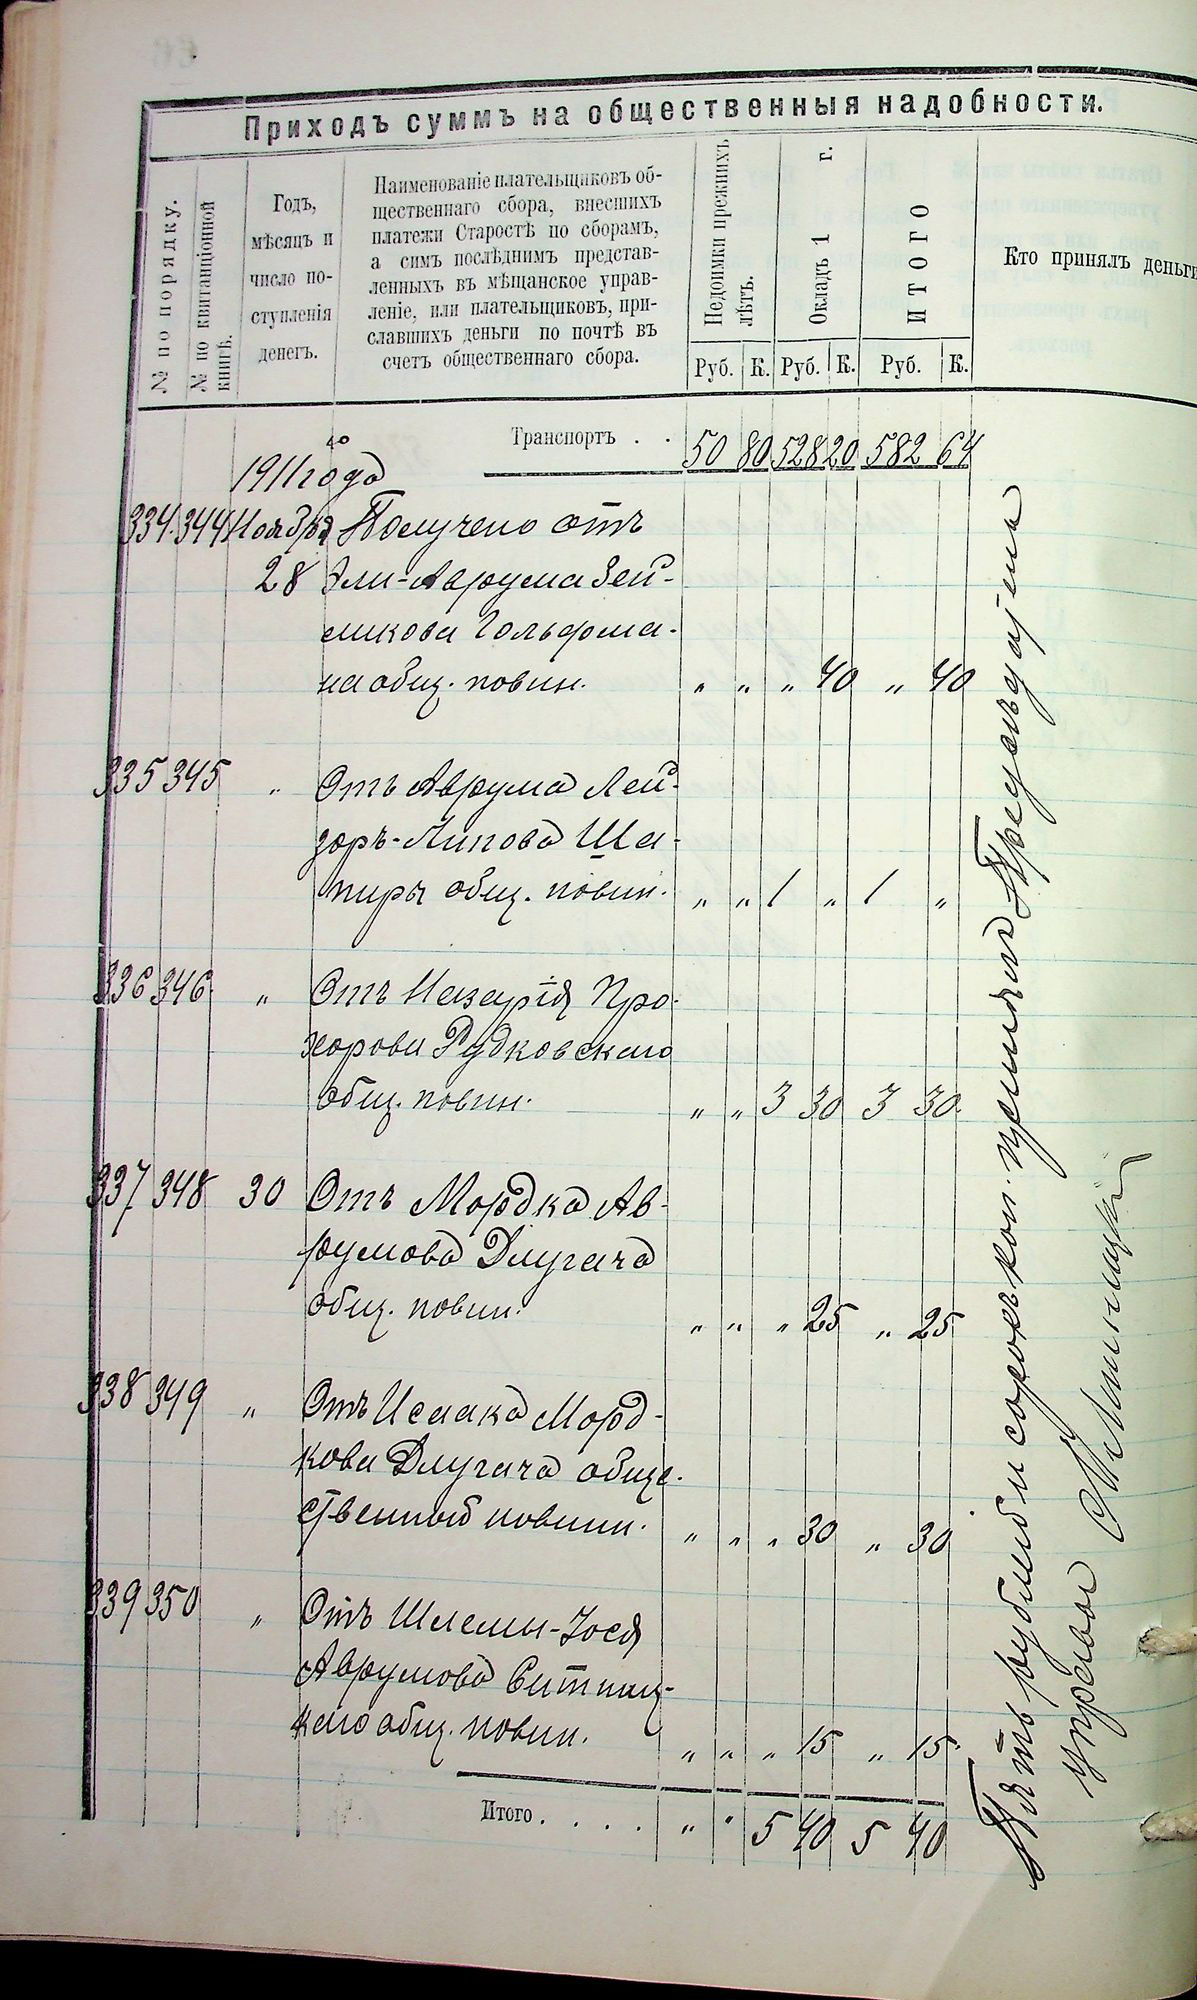 Приходъ суммъ на общественныя надобности.
№ по порядку.
№ по квитанціонной
книгѣ.
Годъ,
мѣсяцъ и
число по-
ступленія
денегъ.
Наименованіе плательщиковъ об-
щественнаго сбора, внесшихъ
платежи Старостѣ по сборамъ,
а симъ послѣднимъ представ-
ленныхъ въ мѣщанское управ-
леніе, или плательщиковъ, при-
славшихъ деньги по почтѣ въ
счетъ общественнаго сбора.
Недоимки прежнихъ
лѣтъ.
Окладъ 1 г.
ИТОГО
Кто принялъ деньги
Руб. К. Руб. К. Руб. К.
Транспортъ . . 50 80 528 20 582 64
1911 года
334 344 Ноября Получено отъ
28 Эли-Аврума Зей-
ликова Гольдма-
на общ. повин. " " " 40 " 40
335 345 " Отъ Аврума Лей-
зоръ-Липова Ша-
пиры общ. повин. " " 1 " 1 "
336 346 " Отъ Назарія Про-
хорова Рудковскаго
общ. повин. " " 3 30 3 30
337 348 30 Отъ Мордка Ав-
румова Длугача
общ. повин. " " " 25 " 25
338 349 " Отъ Исаака Морд-
кова Длугача обще-
ственной повин. " " " 30 " 30
339 350 " Отъ Шлемы-Іося
Аврумова Ситниц-
каго общ. повин. " " " 15 " 15
Итого . . . . " " 5 40 5 40
Пять рублей и сорокъ коп. принялъ Предсѣдатель
управы